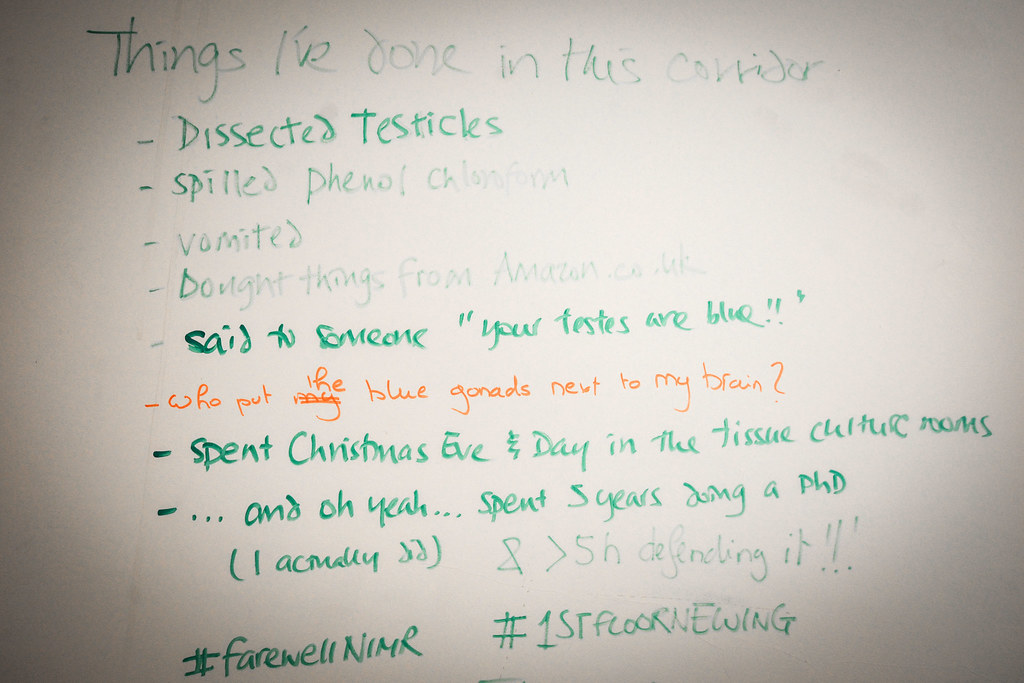 Things I've done in this corridor
- Dissected Testicles
- spilled phenol chloroform
- vomited
- Bought things from Amazon.co.uk
- said to someone "your testes are blue!!"
- who put my the blue gonads next to my brain?
- spent Christmas Eve & Day in the tissue culture rooms
- ... and oh yeah... spent 5 years doing a PhD
(I actually did) & >5h defending it!!!
#farewellNIMR #1STFLOORNEWING